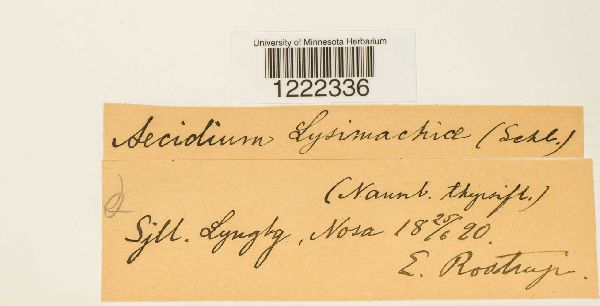 University of Minnesota Herbarium
1222336
Aecidium Lysimachiæ (Schl.)
(Naumb. thyrsifl.)
Sjll. Lyngby, Mosa 18 25/6 90.
E. Rostrup.